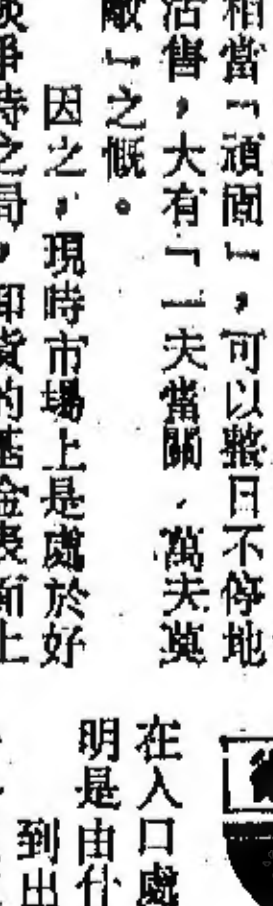 相當『頑固』，可以整日不停地
沽售，大有『一夫當關，萬夫莫
敵』之慨。
因之，現時市場上是處於好
淡爭持之局，卸貨的基金表面上
在入口處
明是由什
到出